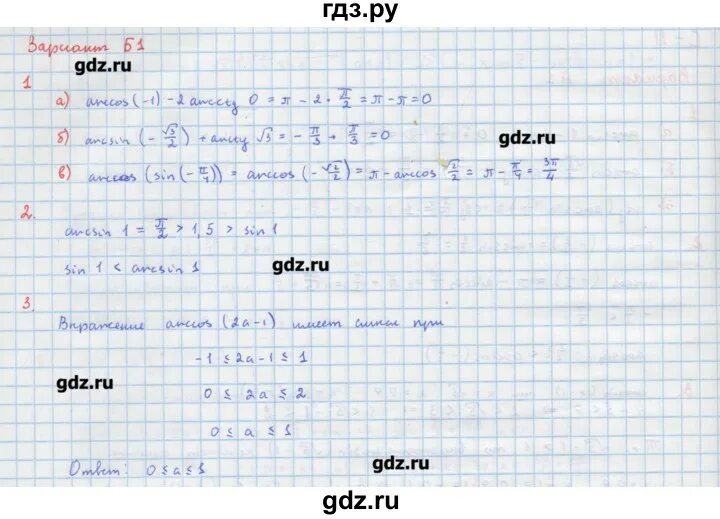 гдз.ру
Вариант Б1
gdz.ru
1
а) arccos(-1) - 2 arcctg 0 = π - 2 · π/2 = π - π = 0
б) arcsin(-√3/2) + arctg √3 = -π/3 + π/3 = 0
gdz.ru
в) arccos(sin(-π/4)) = arccos(-√2/2) = π - arccos √2/2 = π - π/4 = 3π/4
2.
arcsin 1 = π/2 > 1,5 > sin 1
gdz.ru
sin 1 < arcsin 1
3.
Выражение arccos(2a-1) имеет смысл при
-1 ≤ 2a-1 ≤ 1
gdz.ru
0 ≤ 2a ≤ 2
0 ≤ a ≤ 1
gdz.ru
Ответ: 0 ≤ a ≤ 1
gdz.ru